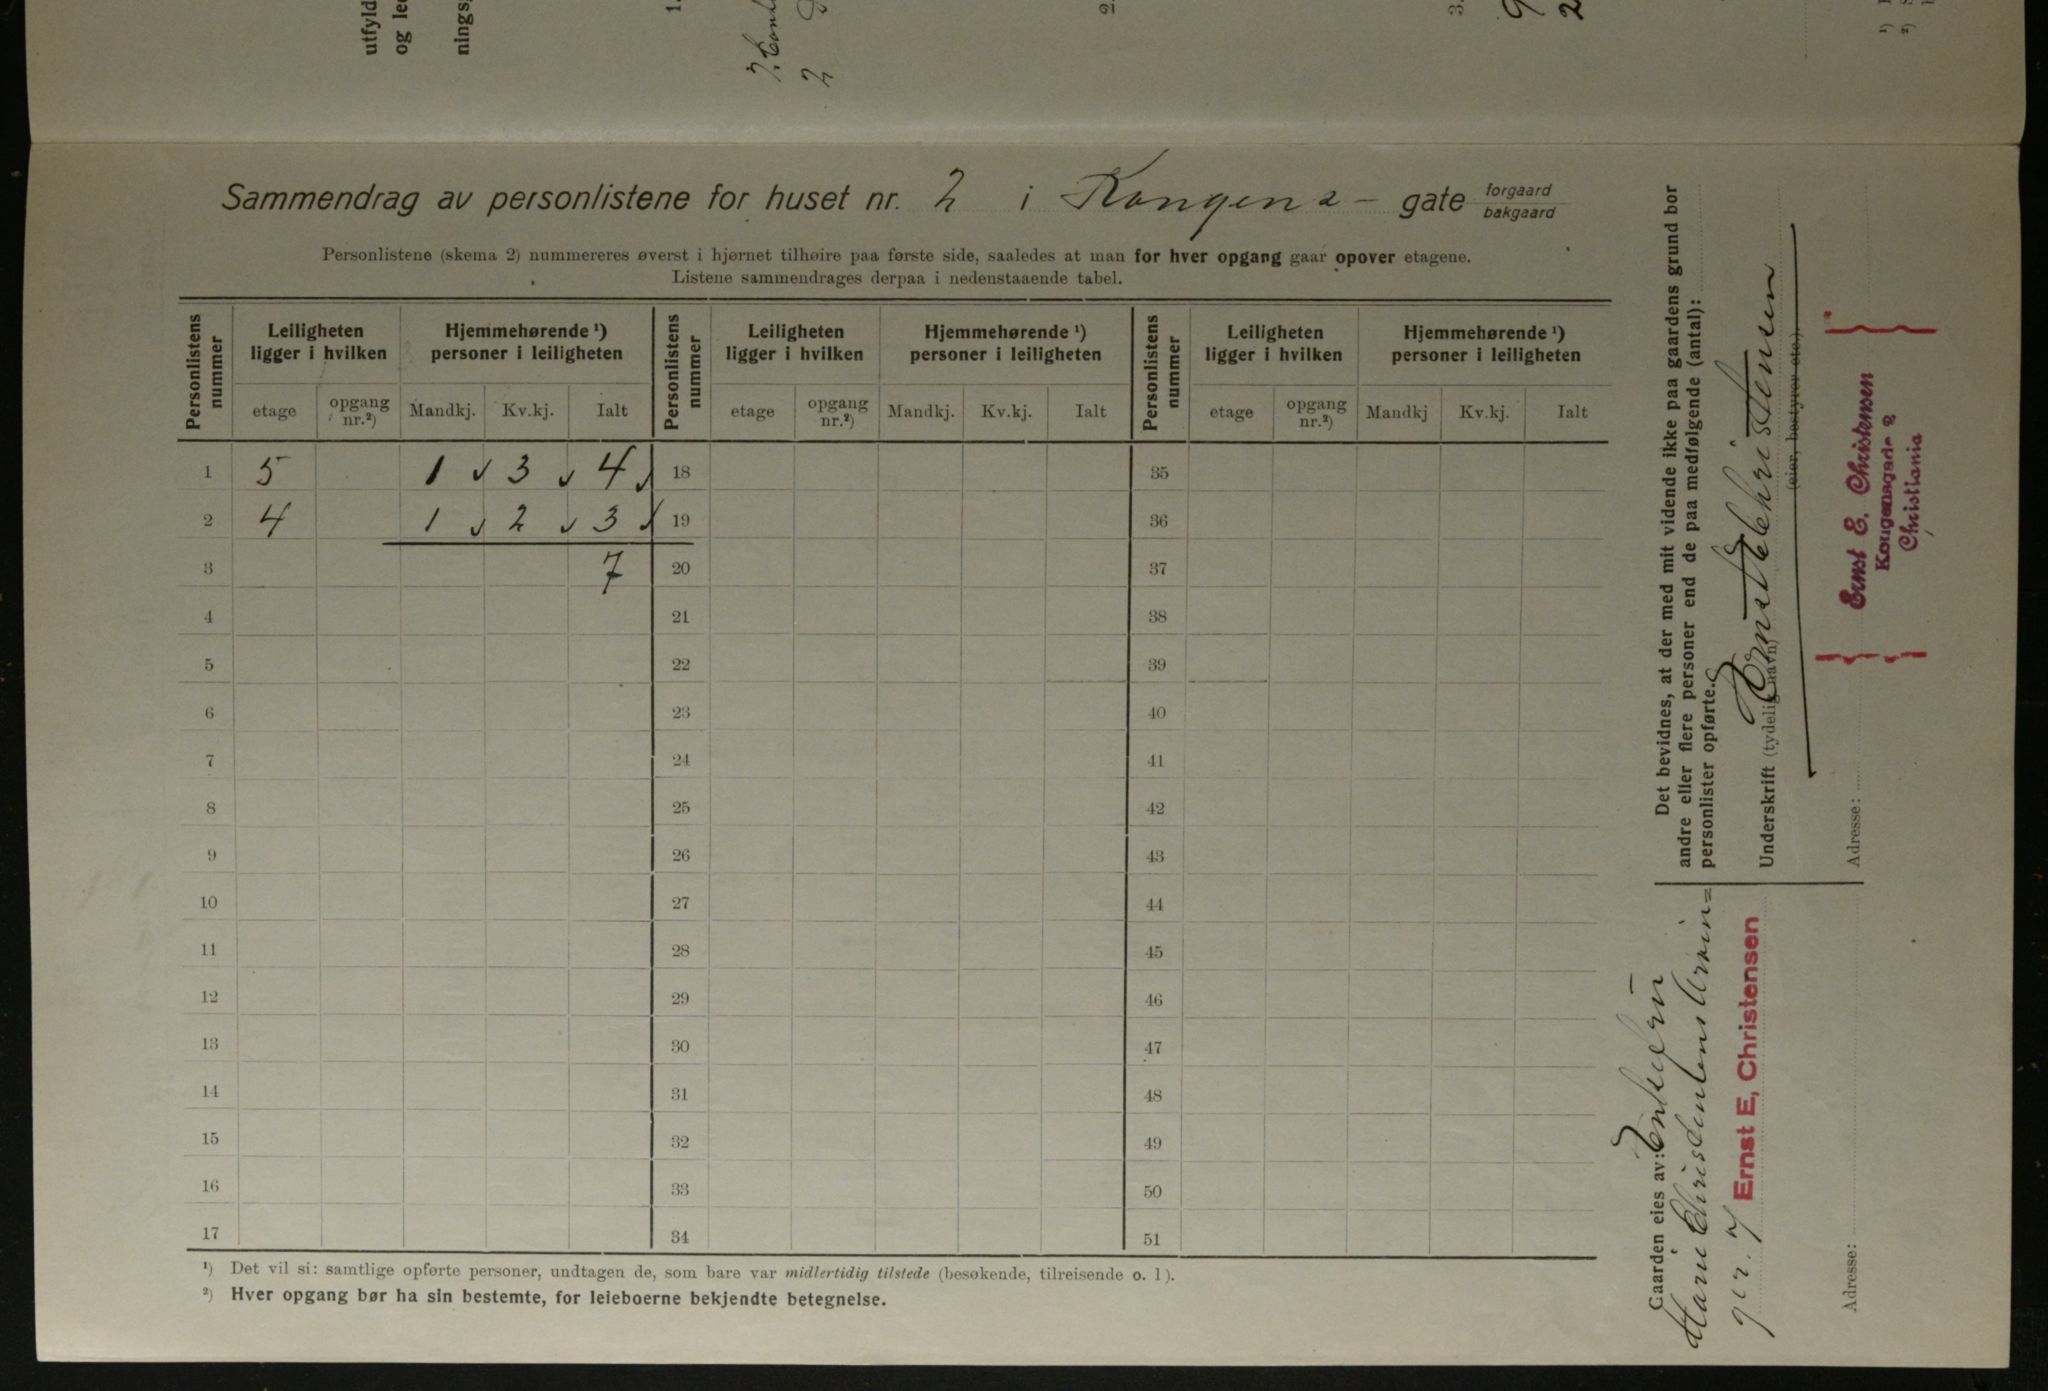 utfyld
og le
nings
1.
2.
3.
9
2
Sammendrag av personlistene for huset nr. 2 i Kongens - gate forgaard bakgaard
Personlistene (skema 2) nummereres øverst i hjørnet tilhøire paa første side, saaledes at man for hver opgang gaar opover etagene.
Listene sammendrages derpaa i nedenstaaende tabel.
Personlistens nummer
Leiligheten ligger i hvilken
Hjemmehørende ¹) personer i leiligheten
Personlistens nummer
Leiligheten ligger i hvilken
Hjemmehørende ¹) personer i leiligheten
Personlistens nummer
Leiligheten ligger i hvilken
Hjemmehørende ¹) personer i leiligheten
etage opgang nr.²) Mandkj. Kv.kj. Ialt etage opgang nr.²) Mandkj. Kv.kj. Ialt etage opgang nr.²) Mandkj Kv.kj. Ialt
1 5 1 3 4 18 35
2 4 1 2 3 19 36
3 7 20 37
4 21 38
5 22 39
6 23 40
7 24 41
8 25 42
9 26 43
10 27 44
11 28 45
12 29 46
13 30 47
14 31 48
15 32 49
16 33 50
17 34 51
¹) Det vil si: samtlige opførte personer, undtagen de, som bare var midlertidig tilstede (besøkende, tilreisende o. l).
²) Hver opgang bør ha sin bestemte, for leieboerne bekjendte betegnelse.
Det bevidnes, at der med mit vidende ikke paa gaardens grund bor
andre eller flere personer end de paa medfølgende (antal):
personlister opførte.
Underskrift (tydelig navn) Ernst E Christensen
(eier, bestyrer etc.).
Ernst E. Christensen
Kongensgade 2
Christiania
Adresse:
Gaarden eies av: Enkefru
Marie Christensens Arvin=
ger. Ernst E, Christensen
Adresse: